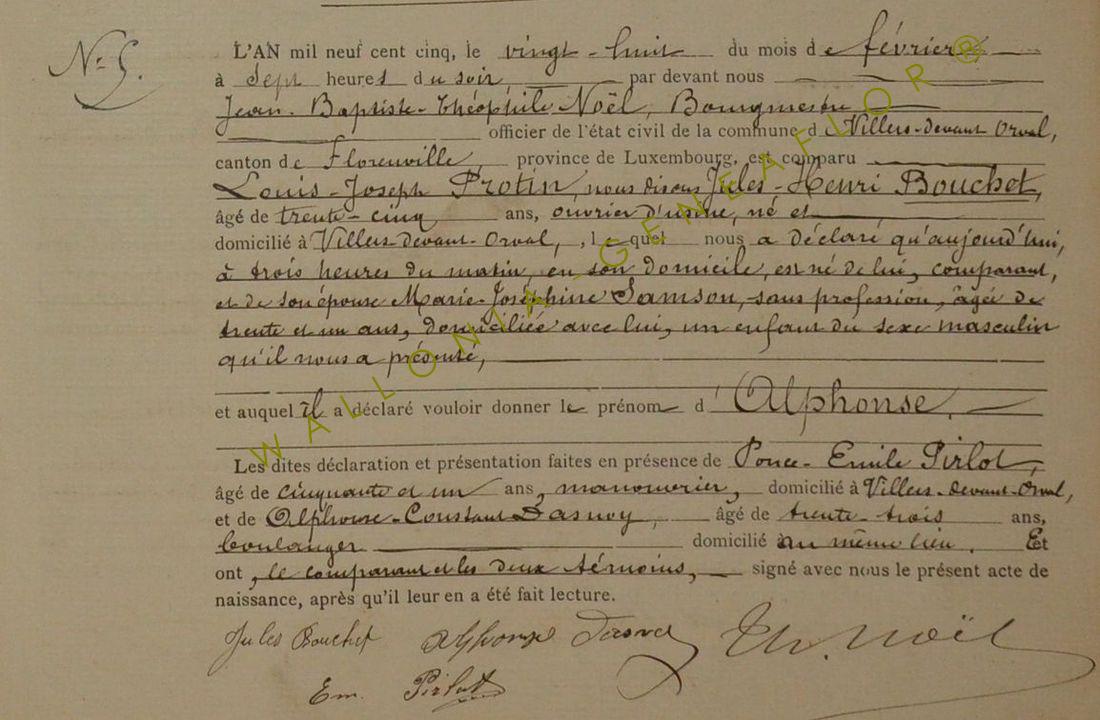 N° 5.
L'AN mil neuf cent cinq, le vingt-huit du mois de février
à sept heures du soir, par devant nous
Jean-Baptiste-Théophile Noël, Bourgmestre
officier de l'état civil de la commune de Villers-devant-Orval,
canton de Florenville, province de Luxembourg, est comparu
Louis-Joseph Protin, nous disons Jules-Henri Bouchet,
âgé de trente-cinq ans, ouvrier d'usine, né et
domicilié à Villers-devant-Orval, , lequel nous a déclaré qu'aujourd'hui,
à trois heures du matin, en son domicile, est né de lui, comparant,
et de son épouse Marie-Joséphine Samson, sans profession, âgée de
trente et un ans, domiciliée avec lui, un enfant du sexe masculin
qu'il nous a présenté,
et auquel il a déclaré vouloir donner le prénom d'Alphonse.
Les dites déclaration et présentation faites en présence de Ponce-Emile Pirlot,
âgé de cinquante et un ans, manouvrier, domicilié à Villers-devant-Orval,
et de Alphonse-Constant Dasnoy, âgé de trente-trois ans,
boulanger domicilié au même lieu. Et
ont, le comparant et les deux témoins, signé avec nous le présent acte de
naissance, après qu'il leur en a été fait lecture.
Jules Bouchet Alphonse Dasnoy Th. Noël
Em. Pirlot
WALLONIA-GENEAFLOR®